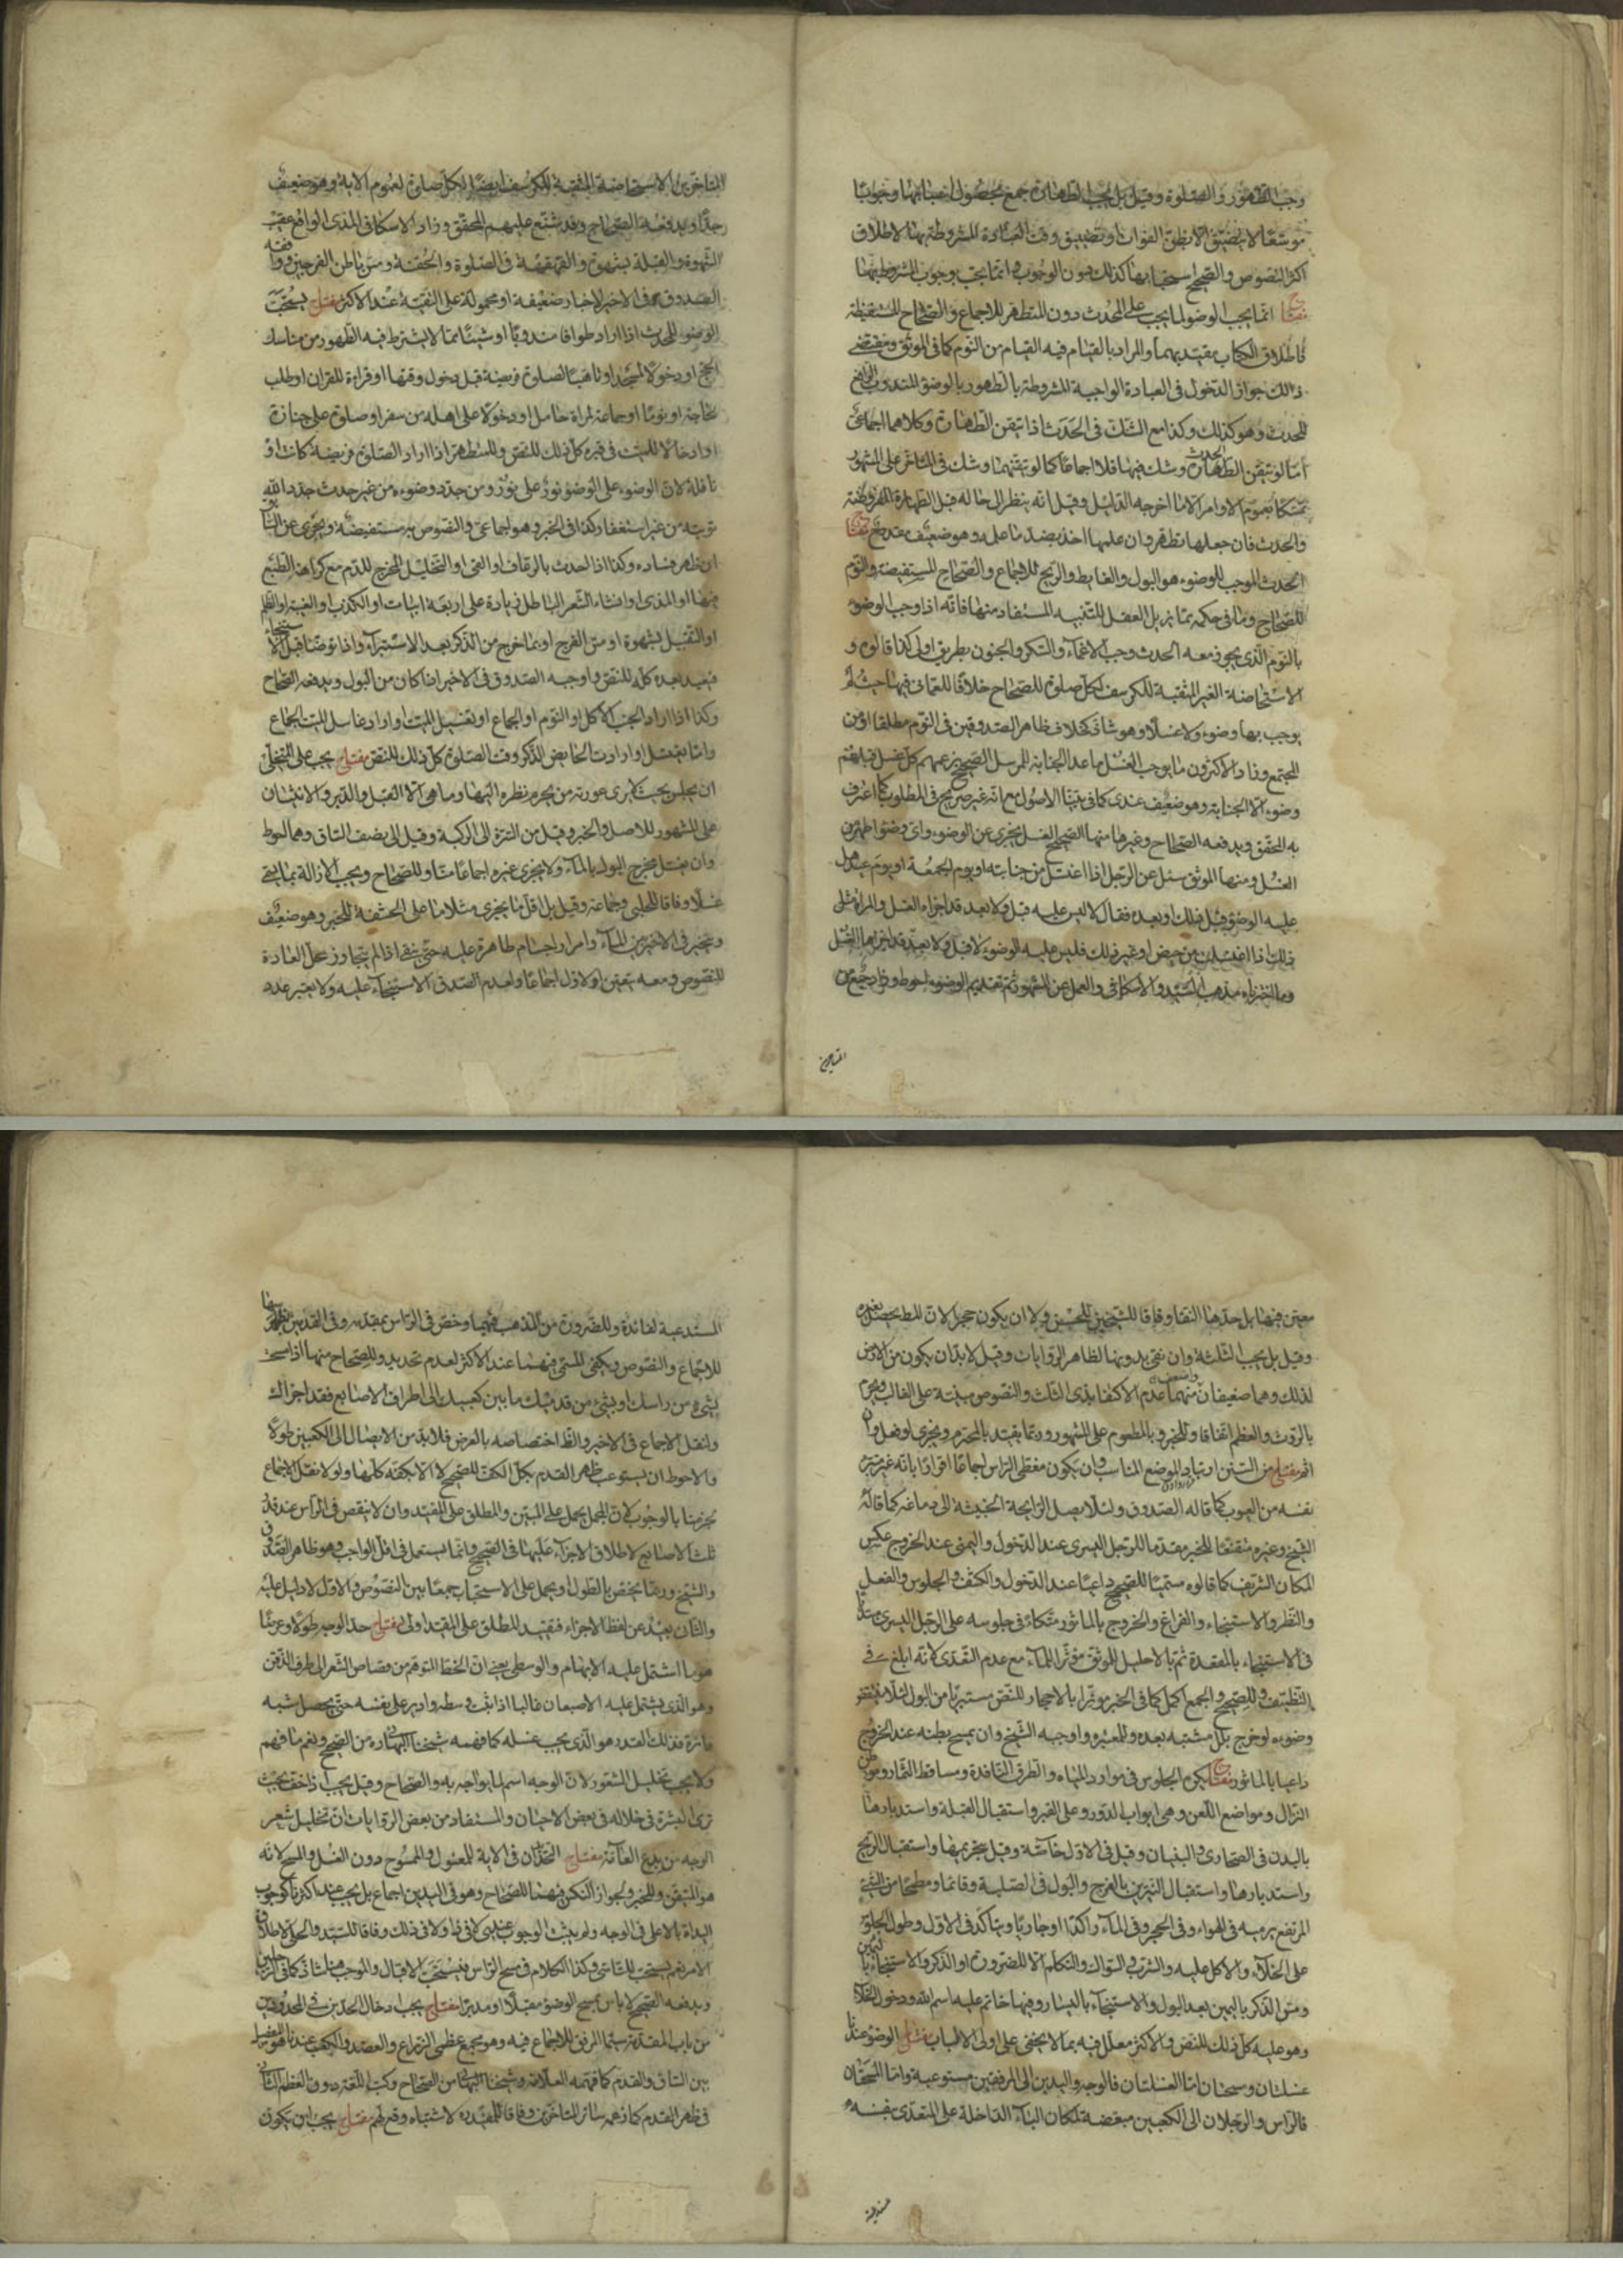 وجب الطهور والصلوة وقيل بل يجب الطهارة جمع بحصول اسبابها وجوبا
موسعا لا يتضيق الا بظن الفوات او تضيق وقت العبادة المشروطة بها لاطلاق
اكثر النصوص والصحيح استحبابها كذلك دون الوجوب وانما يجب بوجوب المشروط بها
مفتاح انما يجب الوضوء لما يجب على المحدث دون المتطهر للاجماع والصحاح المستفيضة
فاطلاق الكتاب مقيد بهما والمراد بالقيام فيه القيام من النوم كما في الموثق ومقتضى
ذلك جواز الدخول في العبادة الواجبة المشروطة بالطهور بالوضوء المندوب الرافع
للحدث وهو كذلك وكذا مع الشك في الحدث اذا تيقن الطهارة وكلاهما اجماعي
اما لو تيقن الحدث وشك فيها فلا اجماعا كما لو تيقنهما وشك في المتاخر على المشهور
تمسكا بعموم الاوامر الا ما اخرجه الدليل وقيل انه ينظر الى حاله قبل الطهارة المفروضة
والحدث فان جهلها تطهر وان علمها اخذ بضد ما علمه وهو ضعيف مفتاح
الحدث الموجب للوضوء هو البول والغايط والريح للاجماع والصحاح المستفيضة والنوم
للصحاح وما في حكمه مما يزيل العقل للتنبيه المستفاد منها فانه اذا وجب الوضوء
بالنوم الذي يجوز معه الحدث وجب بالاغماء والسكر والجنون بطريق اولى كذا قالوه و
الاستحاضة الغير المثقبة للكرسف لكل صلوة للصحاح خلافا للعماني فيها حيث لم
يوجب بها وضوء ولا غسلا وهو شاذ كخلاف ظاهر الصدوقين في النوم مطلقا او من
المجتمع وزاد الاكثرون ما يوجب الغسل ما عدا الجنابة للمرسل الصحيح عندهم كل غسل قبله
وضوء الا الجنابة وهو ضعيف عندي كما في بينا الاصول مع انه غير صريح في المطلوب كما اعترف
به المحقق ويدفعه الصحاح وغيرها منها الصحيح الغسل يجزي عن الوضوء واي وضوء اطهر من
الغسل ومنها الموثق سئل عن الرجل اذا اغتسل من جنابته او يوم الجمعة او يوم عيد هل
عليه الوضوء قبل ذلك او بعده فقال لا ليس عليه قبل ولا بعد قد اجزاه الغسل والمراة مثل
ذلك اذا اغتسلت من حيض او غير ذلك فليس عليه الوضوء لا قبل ولا بعد قد اجزاها الغسل
وما اخترناه مذهب السيد والاسكافي والعمل عن المشهور ثم تقديم الوضوء احوط وزاد جمع من
المتاخرين
المتاخرين الاستحاضة المثقبة للكرسف ايضا لكل صلوة لعموم الاية وهو ضعيف
جدا ويدفعه الصحاح وقد شنع عليهم المحقق وزاد الاسكافي المذي الواقع عقيب
الشهوة والقبلة بشهوة والقهقهة في الصلوة والحقنة ومس باطن الفرجين ووافقه
الصدوق في الاخير لاخبار ضعيفة او محمولة على التقية عند الاكثر مفتاح يستحب
الوضوء للمحدث اذا اراد طوافا مندوبا او شيئا مما لا يشترط فيه الطهور من مناسك
الحج او دخولا لمسجد او تاهبا لصلوة فريضة قبل دخول وقتها او قراءة للقران او طلب
حاجة او نوما او جماعة لمراة حامل او دخولا على اهله من سفر او صلوة على جنازة
او ادخالا للميت في قبره كل ذلك للنص وللمتطهر اذا اراد الصلوة فريضة كانت او
نافلة لان الوضوء على الوضوء نور على نور ومن جدد وضوءه من غير حدث جدد الله
توبته من غير استغفار كذا في الخبر وهو اجماعي والنصوص به مستفيضة ويجزي عن
ان ظهر فساده وكذا اذا الحدث بالرعاف او القي او التخليل المخرج للدم مع كراهة الطبع
فيها او المذي او انشاء الشعر الباطل زيادة على اربعة ابيات او الكذب او الغيبة او الظلم
او التقبيل بشهوة او مس الفرج او بما خرج من الذكر بعد الاستبراء واذا توضا قبل الاستنجاء
فيعيد بعده كله للنص واوجبه الصدوق في الاخير اذا كان من البول ويدفعه الصحاح
وكذا اذا اراد الجنب الاكل او النوم او الجماع او تغسيل الميت او اراد غاسل الميت الجماع
ولما يغتسل او ارادت الحايض الذكر وقت الصلوة كل ذلك للنص مفتاح يجب على المتخلي
ان يجلس بحيث لا يرى عورته من يحرم نظره اليها وما هي الا القبل والدبر والانثيان
على المشهور للاصل والخبر وقيل من السرة الى الركبة وقيل الى نصف الساق وهما احوط
وان يغسل مخرج البول بالماء ولا يجزي غيره اجماعا منا وللصحاح ويجب الازالة بما يسمى
غسلا وفاقا للحلبي وجماعة وقيل بل اقل ما يجزي مثلا ما على الحشفة للخبر وهو ضعيف
ويتخير في الاخر بين الماء وامرار اجسام طاهرة عليه حتى ينقى اذا لم يتجاوز محل العادة
للنصوص ومعه يتعين الاول اجماعا ولعدم الصدق الاستنجاء عليه ولا يعتبر عدد
معين فيها بل حدها النقا وفاقا للشيخين للحسن ولا ان يكون حجرا لان المط يحصل بغيره
وقيل بل يجب الثلثة وان نقي بدونها لظاهر الروايات وقيل لابد ان يكون من الارض
لذلك وهما ضعيفان واضعف منهما عدم الاكتفا بذي الثلث والنصوص مبنية على الغالب ويحرم
بالروث والعظم اتفاقا وللخبر وبالمطعوم على المشهور وربما يقيد بالمحترم ويجزي لو فعل وان
اثم مفتاح من السنن ارتياد الموضع المناسب وان يكون مغطى الراس اجماعا اقرارا بانه غير مبرئ
نفسه من العيوب كما قاله الصدوق ولئلا يصل الرايحة الخبيثة الى دماغه كما قاله
الشيخ وغيره متقنعا للخبر مقدما للرجل اليسرى عند الدخول واليمنى عند الخروج عكس
المكان الشريف كما قالوه مسميا للصحيح داعيا عند الدخول والكشف والجلوس والفعل
والنظر والاستنجاء والفراغ والخروج بالماثور متكئا في جلوسه على الرجل اليسرى مبتدئا
في الاستنجاء بالمقعدة ثم بالاحليل للموثق مؤثرا للماء مع عدم التعدي لانه ابلغ في
التنظيف وللصحيح والجمع اكمل كما في الخبر موترا بالاحجار للنص مستبرئا من البول لئلا ينتقض
وضوءه لو خرج بلل مشتبه بعده وللمعتبره واوجبه الشيخ وان يمسح بطنه عند الخروج
داعيا بالماثور مفتاح يكره الجلوس في موارد المياه والطرق النافذة ومساقط الثمار ومواطن
النزال ومواضع اللعن وهي ابواب الدور وعلى القبر واستقبال القبلة واستدبارها
بالبدن في الصحاري والبنيان وقيل في الاول خاصة وقيل بتحريمها واستقبال الريح
واستدبارها واستقبال النيرين بالفرج والبول في الصلبة وقائما ومطمحا من الشيء
المرتفع يرمي به في الهواء وفي الحجر وفي الماء راكدا او جاريا ويتاكد في الاول وطول الجلوس
على الخلاء والاكل عليه والشرب والسواك والتكلم الا للضرورة او الذكر والاستنجاء باليمين
ومس الذكر باليمين بعد البول والاستنجاء باليسار وفيها خاتم عليه اسم الله ودخول الخلاء
وهو عليه كل ذلك للنص والاكثر معلل فيه بما لا يخفى على اولي الالباب مفتاح الوضوء عندنا
غسلتان ومسحتان اما الغسلتان فالوجه واليدين الى المرفقين مستوعبة واما المسحتان
فالراس والرجلان الى الكعبين مبعضة لمكان الباء الداخلة على المتعدي بنفسه
المستدعية لفائدة وللضرورة من المذهب فيهما وخص في الراس بمقدمه وفي القدمين بظهرهما
للاجماع والنصوص ويكفي المسمى فيهما عند الاكثر لعدم تحديد وللصحاح منها اذا مسحت
بشيء من راسك او بشيء من قدميك ما بين كعبيك الى اطراف الاصابع فقد اجزاك
ولنقل الاجماع في الاخير والظ اختصاصه بالعرض فلا بد من الايصال الى الكعبين طولا
والاحوط ان يستوعب ظهر القدم بكل الكف للصحيح لا الا بكفه كلها ولولا نقل الاجماع
لجزمنا بالوجوب لان المجمل يحمل على المبين والمطلق على المقيد وان لا ينقص في الراس عن قدر
ثلث الاصابع لاطلاق الاجزاء عليها في الصحيح وانما يستعمل في اقل الواجب وهو ظاهر الصدوق
والشيخ وربما يخص بالطول او يحمل على الاستحباب جمعا بين النصوص والاول لا دليل عليه
والثاني بعيد عن لفظ الاجزاء فتقييد المطلق على المقيد اولى مفتاح حد الوجه طولا وعرضا
هو ما اشتمل عليه الابهام والوسطى بمعنى ان الخط المتوهم من قصاص الشعر الى طرف الذقن
وهو الذي يشتمل عليه الاصبعان غالبا اذا ثبت وسطه وادير على نفسه حتى يحصل شبه
دائرة فذلك القدر هو الذي يجب غسله كما فهمه شيخنا البهائي ره من الصحيح ونعم ما فهم
ولا يجب تخليل الشعور لان الوجه اسم لما يواجه به وللصحاح وقيل يجب اذا خف بحيث
ترى البشرة في خلاله في بعض الاحيان والمستفاد من بعض الروايات ان تخليل شعر
الوجه من بدع العامة مفتاح التحديدان في الاية للمغسول والممسوح دون الغسل والمسح لانه
هو المتيقن وللخبر ولجواز النكس فيهما للصحاح وهو في اليدين اجماع بل يجب عند اكثرنا كوجوب
البداة بالاعلى في الوجه ولم يثبت الوجوب عندي لا في ذا ولا في ذلك وفاقا للسيد والحلي لاطلاق
الامر نعم يستحب للتاسي وكذا الكلام في مسح الراس فيستحب الاقبال والموجب هنا شاذ كما في الرجلين
ويدفعه الصحيح لا باس بمسح الوضوء مقبلا ومدبرا مفتاح يجب ادخال الحدين في المحدودين
من باب المقدمة سيما المرفق للاجماع فيه وهو مجمع عظمي الذراع والعضد والكعب عندنا هو المفصل
بين الساق والقدم كما فهمه العلامة وشيخنا البهائي من الصحاح وكتب اللغة دون العظم الناتي
في ظهر القدم كما زعمه سائر المتاخرين وفاقا للمفيد ره لاشتباه وقع لهم مفتاح يجب ان يكون